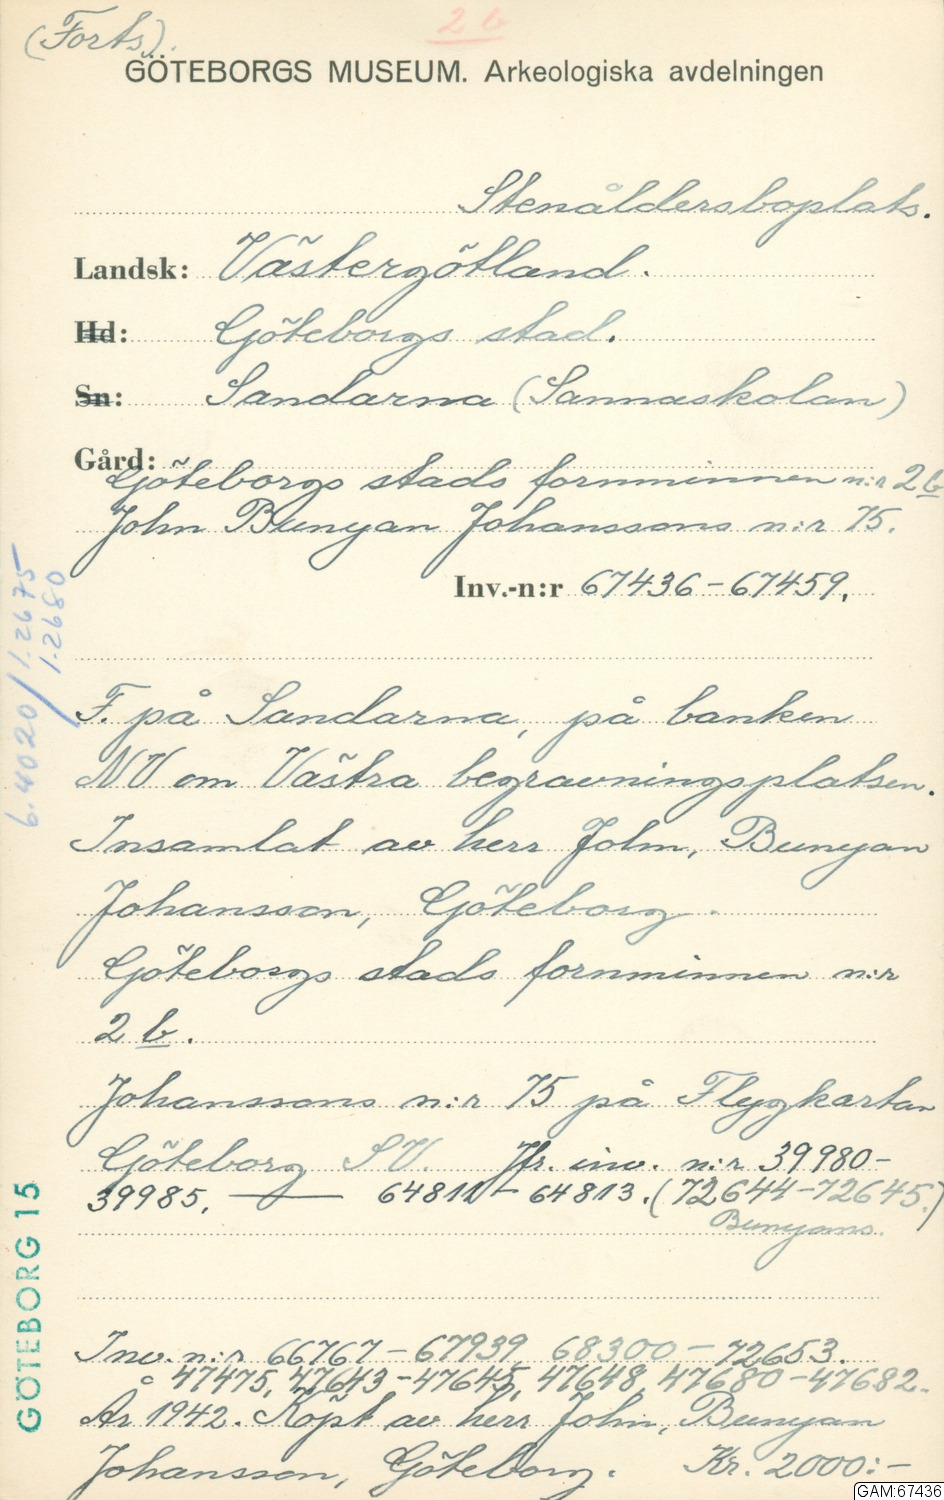 (Forts).
2 b
GÖTEBORGS MUSEUM. Arkeologiska avdelningen
Stenåldersboplats.
Landsk: Västergötland.
Hd: Göteborgs stad.
Sn: Sandarna (Sannaskolan)
Gård:
Göteborgs stads fornminnen n:r 2b
John Bunyan Johanssons n:r 75.
Inv.-n:r 67436-67459.
6.4020/1.2675
/1.2680
F. på Sandarna, på banken
NV om Västra begravningsplatsen.
Insamlat av herr John, Bunyan
Johansson, Göteborg.
Göteborgs stads fornminnen n:r
2 b.
Johanssons n:r 75 på Flygkartan
Göteborg SV. Jfr. inv. n:r 39980-
39985. — 64811-64813. (72644-72645.)
Bunyans.
GÖTEBORG 15
Inv. n:r 66767-67939 68300-72653.
47475, 47643-47645, 47648, 47680-47682.
År 1942. Köpt av herr John, Bunyan
Johansson, Göteborg. Kr. 2000:-
GAM:67436